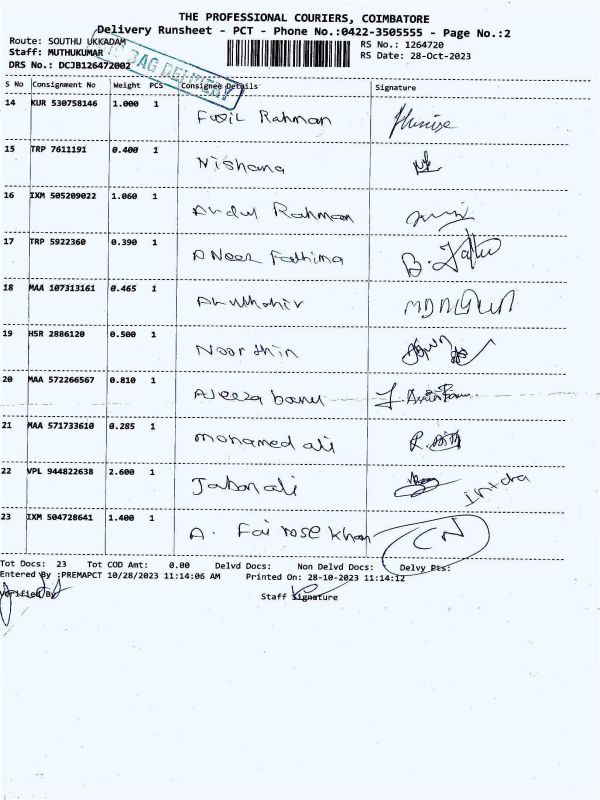 THE PROFESSIONAL COURIERS, COIMBATORE
Delivery Runsheet - PCT - Phone No.:0422-3505555 - Page No.:2
Route: SOUTHU UKKADAM RS No.: 1264720
Staff: MUTHUKUMAR RS Date: 28-Oct-2023
DRS No.: DCJB126472002
BAG DELIVERY
S No Consignment No Weight PCS Consignee Details Signature
14 KUR 530758146 1.000 1 Fazil Rahman
15 TRP 7611191 0.400 1 Nishana
16 IXM 505209022 1.060 1 Abdul Rahman
17 TRP 5922360 0.390 1 ANees Fathima
18 MAA 107313161 0.465 1
19 HSR 2886120 0.500 1 Noorshin
20 MAA 572266567 0.810 1 AJeeza banu
21 MAA 571733610 0.285 1 mohamed ali
22 VPL 944822638 2.600 1 Jabarali
23 IXM 504728641 1.400 1 A. Fairose khan
Tot Docs: 23 Tot COD Amt: 0.00 Delvd Docs: Non Delvd Docs: Delvy Pts:
Entered By :PREMAPCT 10/28/2023 11:14:06 AM Printed On: 28-10-2023 11:14:12
Verified By Staff Signature